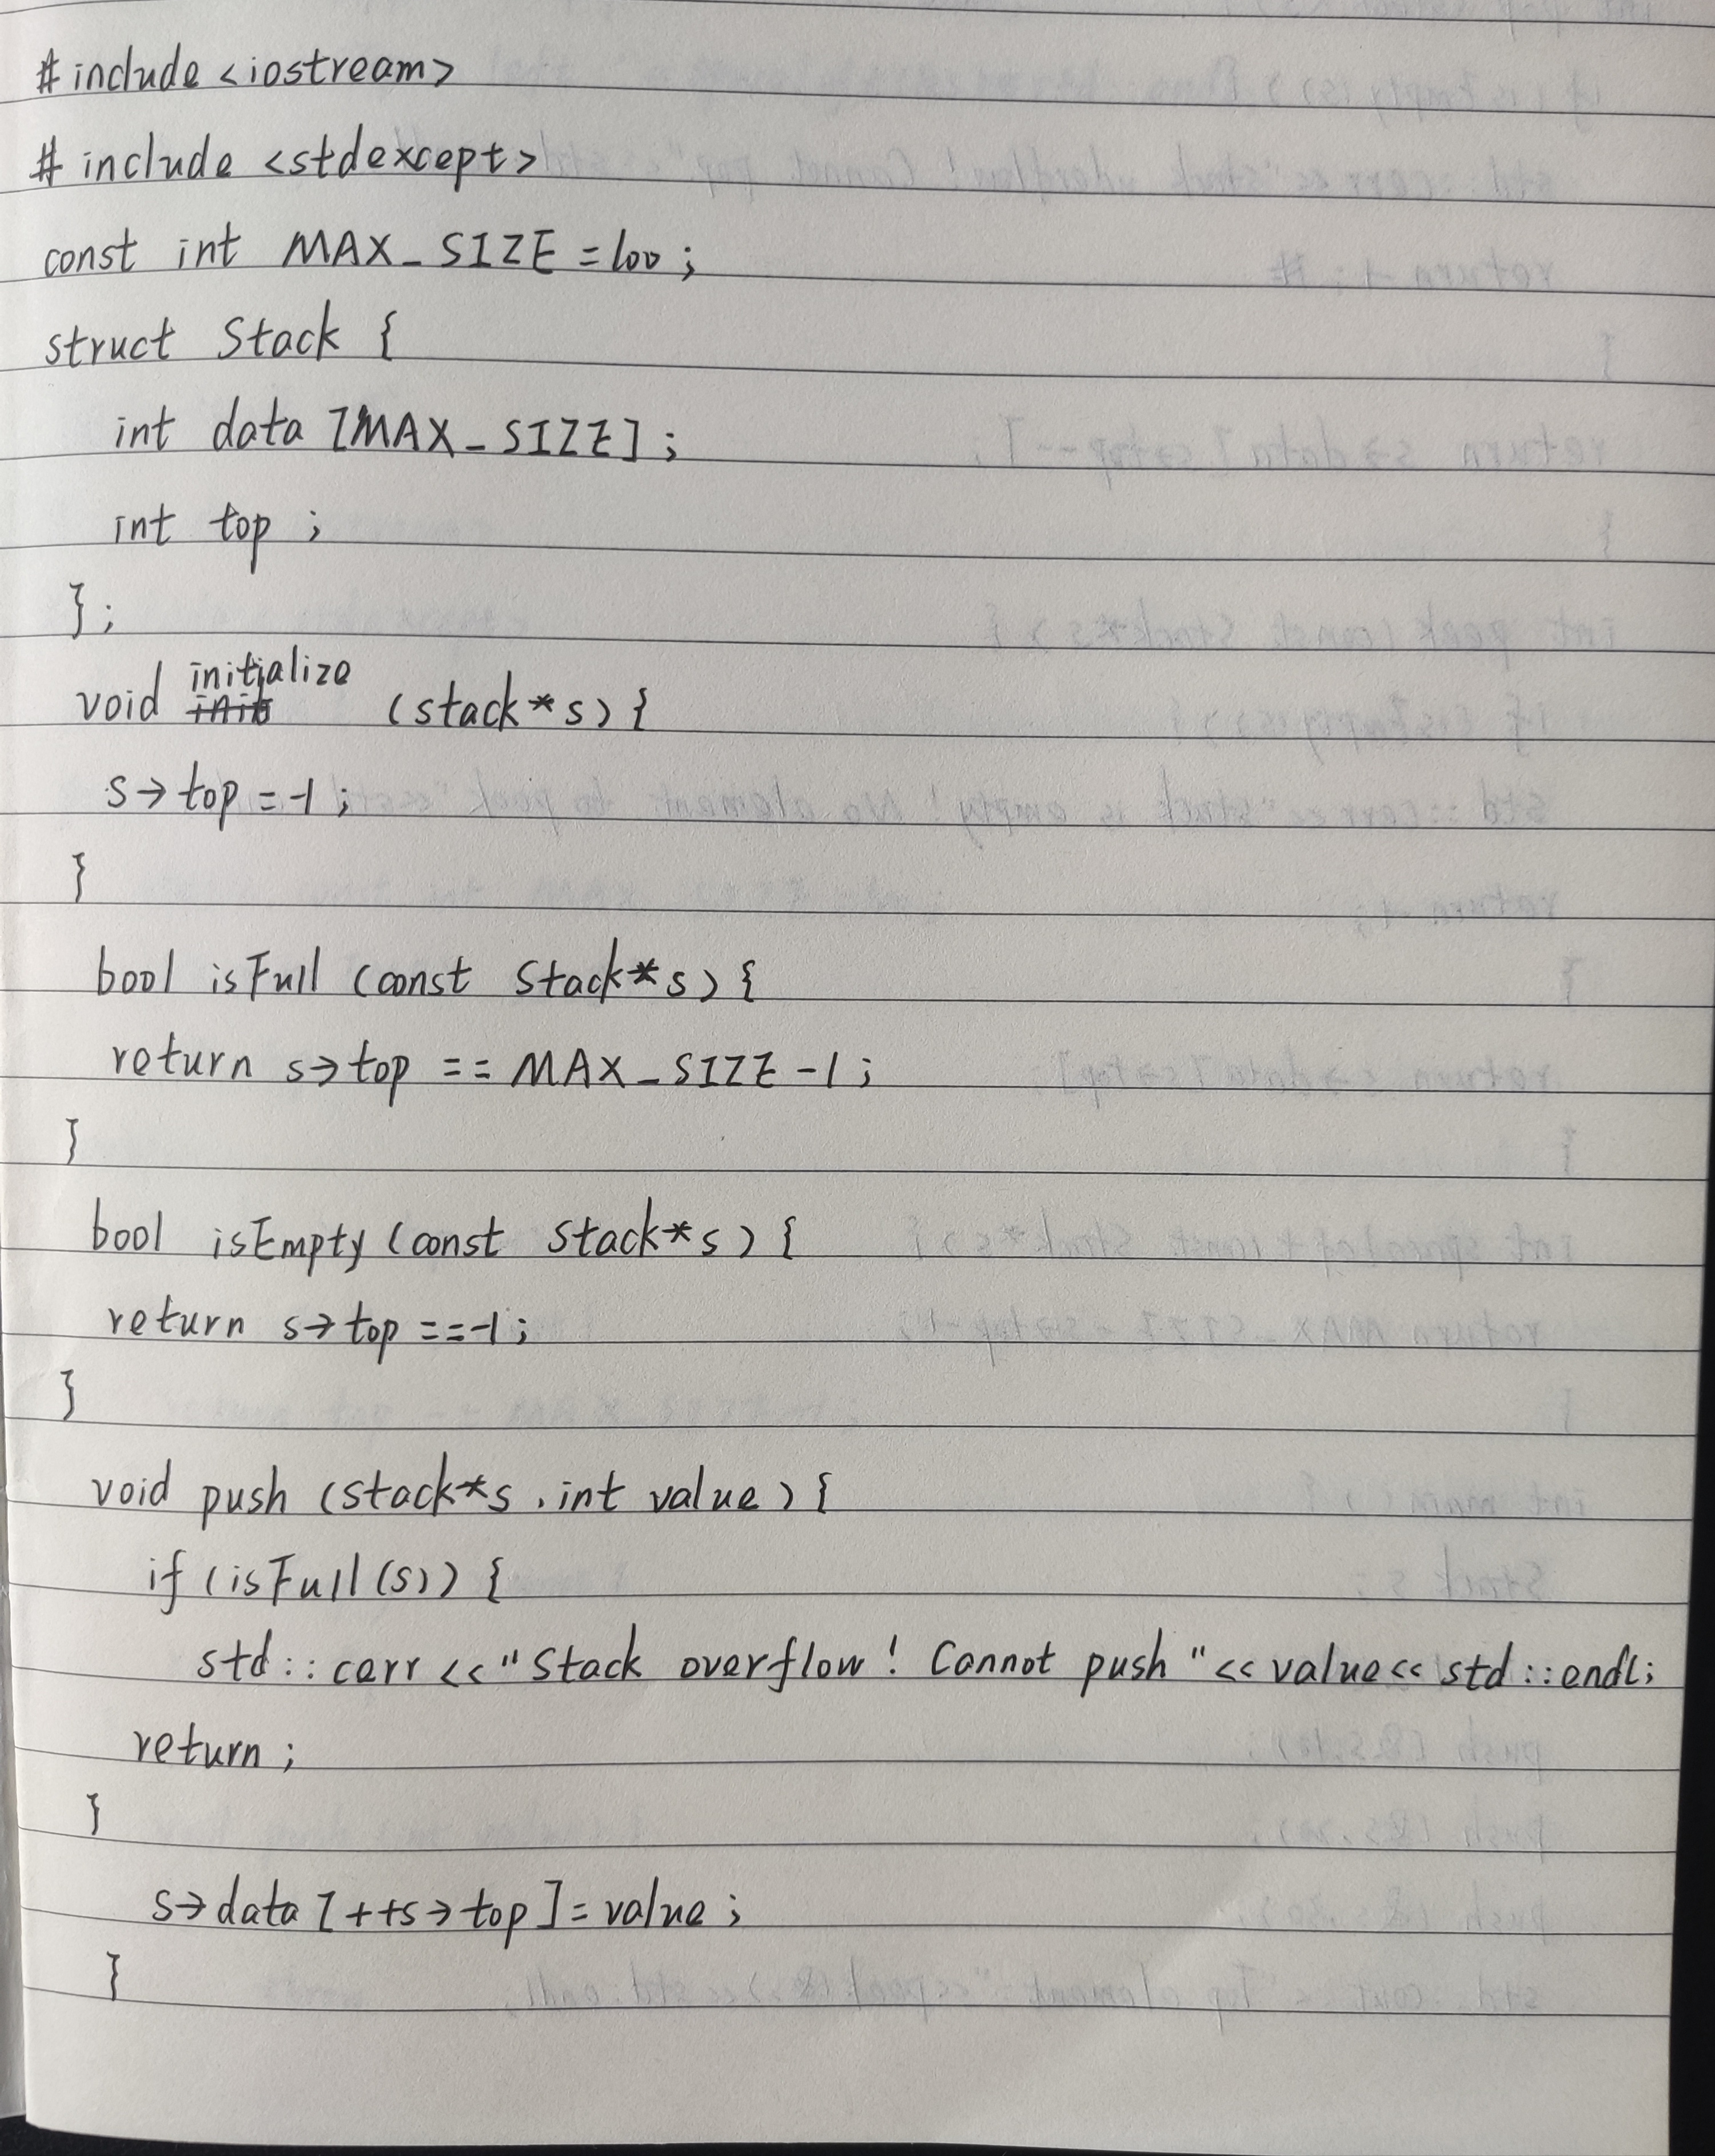 #include <iostream>
# include <stdexcept>
const int MAX_SIZE = 100;
struct Stack {
int data [MAX_SIZE];
int top ;
};
void initialize (stack*s){
s→top = -1;
}
bool isFull (const Stack*s){
return s→top == MAX_SIZE -1;
}
bool isEmpty (const Stack*s){
return s→top == -1;
}
void push (stack*s , int value ){
if (isFull(s)) {
std::cerr << "Stack overflow! Cannot push "<< value << std::endl;
return;
}
s→data [++s→top] = value;
}